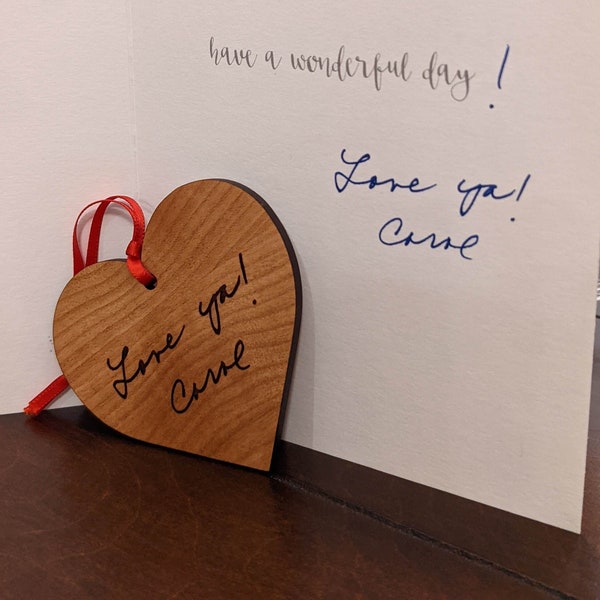 have a wonderful day !
Love ya!
Carol
Love ya!
Carol